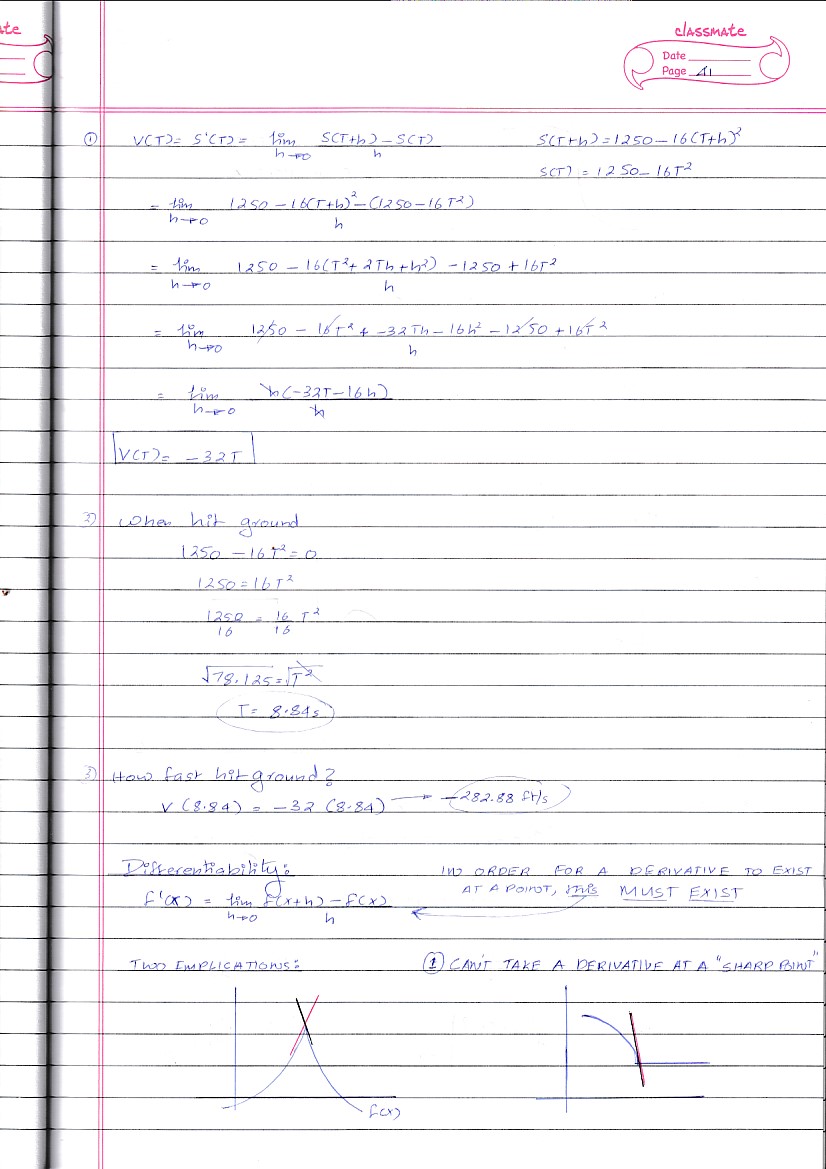 te
classmate
Date
Page 41
① V(T) = S'(T) = lim h→0 S(T+h) - S(T) / h
S(T+h) = 1250 - 16(T+h)²
S(T) = 1250 - 16T²
= lim h→0 1250 - 16(T+h)² - (1250 - 16T²) / h
= lim h→0 1250 - 16(T² + 2Th + h²) - 1250 + 16T² / h
= lim h→0 1250 - 16T² + -32Th - 16h² - 1250 + 16T² / h
= lim h→0 h(-32T - 16h) / h
V(T) = -32T
2) When hit ground
1250 - 16T² = 0
1250 = 16T²
1250/16 = 16/16 T²
√78.125 = √T²
T = 8.84s
3) How fast hit ground?
V(8.84) = -32(8.84) → -282.88 ft/s
Differentiability:
IN ORDER FOR A DERIVATIVE TO EXIST
AT A POINT, this MUST EXIST
f'(x) = lim h→0 f(x+h) - f(x) / h
TWO IMPLICATIONS:
① CAN'T TAKE A DERIVATIVE AT A "SHARP POINT"
f(x)